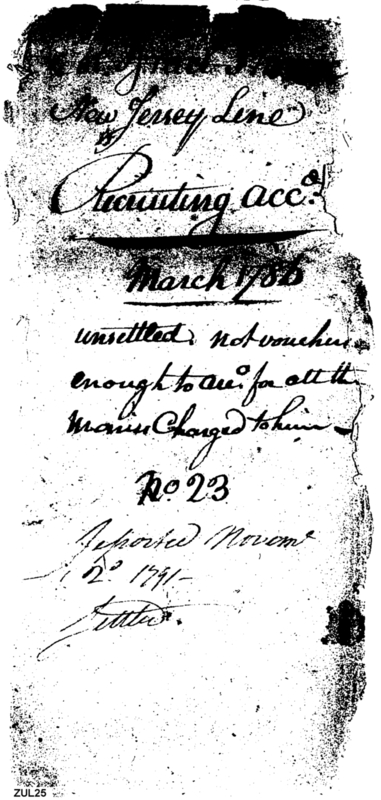 New Jersey Line
Recruiting acco.t
March 1786
unsettled, not vouchers
enough to acc.o for all the
monies Charged to him
No 23
Reported Novem.r
2.d 1791
Settled.
ZUL25